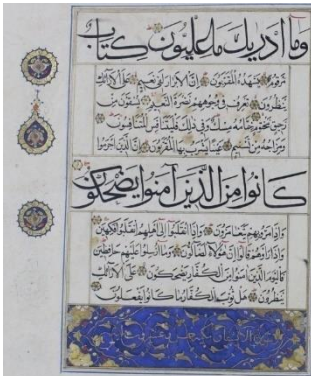 وما ادريك ما عليون كتاب
مرقوم يشهده المقربون إن الابرار لفي نعيم على الارائك
ينظرون تعرف في وجوههم نضرة النعيم يسقون من
رحيق مختوم ختامه مسك وفي ذلك فليتنافس المتنافسون
ومزاجه من تسنيم عينا يشرب بها المقربون إن الذين اجرموا
كانوا من الذين آمنوا يضحكون
واذا مروا بهم يتغامزون واذا انقلبوا الى اهلهم انقلبوا فكهين
واذا راوهم قالوا ان هؤلاء لضالون وما ارسلوا عليهم حافظين
فاليوم الذين امنوا من الكفار يضحكون على الارائك
ينظرون هل ثوب الكفار ما كانوا يفعلون